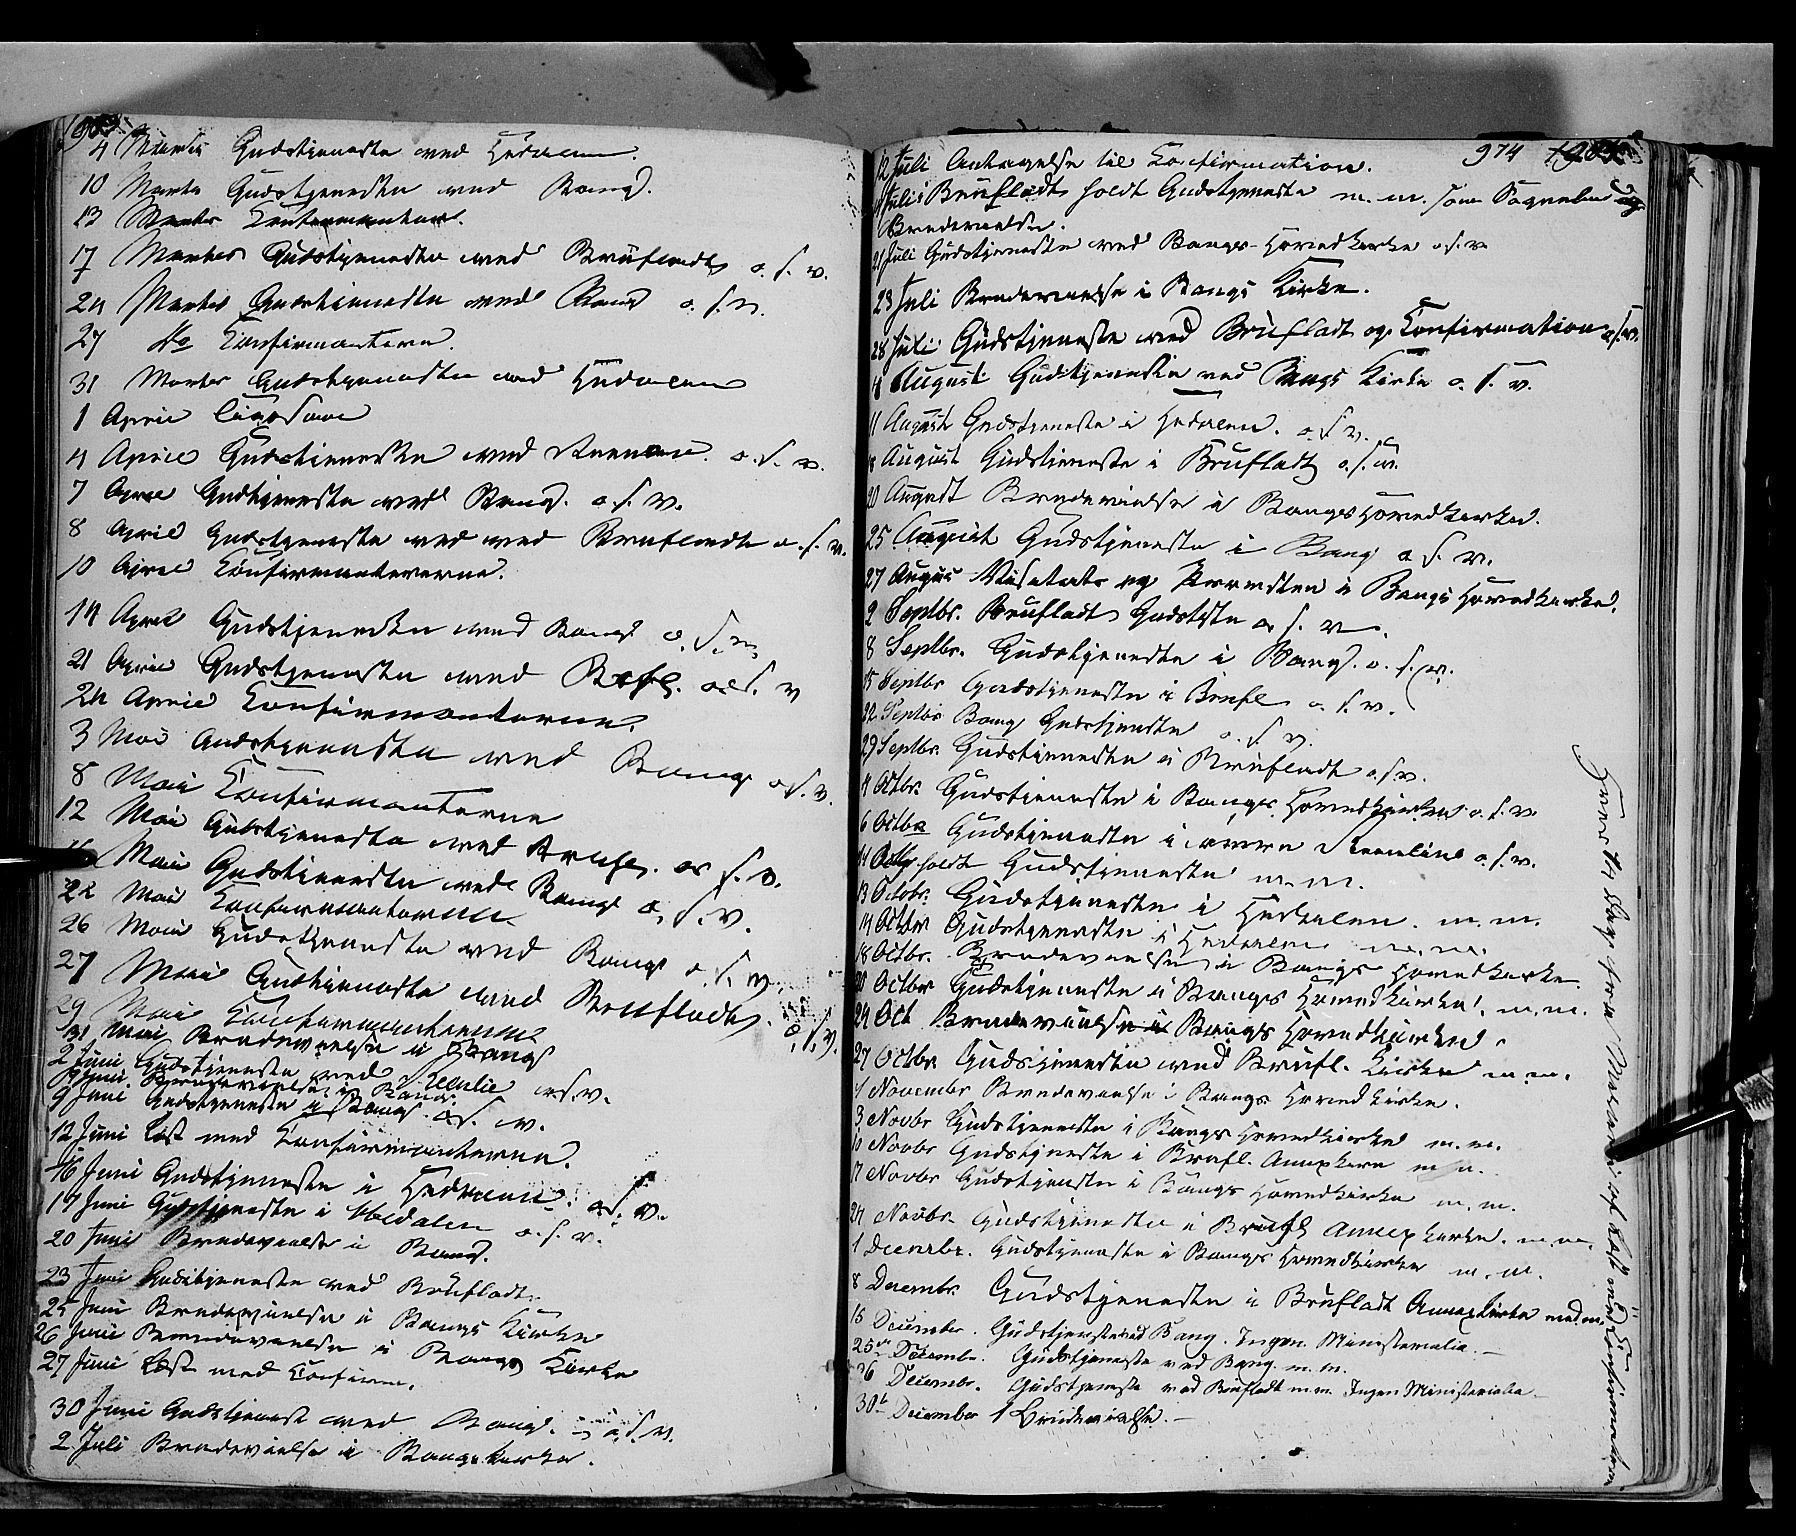 4 Marts Gudstjeneste ved Hedalen.
10 Marts Gudstjeneste ved Bang.
13 Marts Confirmanterne.
17 Marts Gudstjeneste ved Brufladt o. s. v.
24 Marts Gudstjeneste ved Bang o. s. v.
27 do Confirmanterne.
31 Marts Gudstjeneste ved Hedalen
1 April
4 April Gudstjeneste ved o. s. v.
7 April Gudstjeneste ved Bang. o. s. v.
8 April Gudstjeneste ved ved Brufladt o. s. v.
10 April Confirmanterne.
14 April Gudstjeneste ved Bang o. s. v.
21 April Gudstjeneste ved Brfl. o. s. v
24 April Confirmanterne.
3 Mai Gudstjeneste ved Bang o. s. v.
8 Mai Confirmanterne
12 Mai Gudstjeneste ved Brufl. o. s. v.
Mai Gudstjeneste ved Bang o. s. v.
22 Mai Confirmanterne
26 Mai Gudstjeneste ved Bang o. s. v.
27 Mai Gudstjeneste ved Brufladt o. s. v.
29 Mai Confirmanterne
31 Mai Brudevielse i Bang
2 Juni Gudstjeneste ved o. s. v.
Juni Brudevielse i Bang.
9 Juni Gudstjeneste i Bang o. s. v.
12 Juni læst med Confirmanterne.
16 Juni Gudstjeneste i Hedalen o. s. v.
17 Juni Gudstjeneste i Hedalen o. s. v.
20 Juni Brudevielse i Bang.
23 Juni Gudstjeneste ved Brufladt.
25 Juni Brudevielse i Bangs Kirke
26 Juni Brudevielse i Bangs Kirke
27 Juni Læst med Confirm.
30 Juni Gudstjenest ved Bang. o. s. v.
2 Juli Brudevielse i Bangs Kirke.
974
12 Juli Antagelse til Confirmation.
Juli Brufladt holdt Gudstjeneste m. m. som Sognebud og
Brudevielse.
21 Juli Gudstjeneste ved Bangs Hovedkirke o. s. v
23 Juli Brudevielse i Bangs Kirke.
28 Juli Gudstjeneste ved Brufladt og Confirmation o. s. v.
4 August Gudstjeneste ved Bangs Kirke o. s. v.
11 August Gudstjeneste i Hedalen. o. s. v.
18 August Gudstjeneste i Brufladt o. s. v.
20 August Brudevielse i Bangs Hovedkirke.
25 August Gudstjeneste i Bang o. s. v.
27 August Visitats og i Bangs Hovedkirke.
2 Septbr. Brufladt Gudstste o. s. v.
8 Septbr. Gudstjeneste i Bang. o. s. v.
15 Septbr Gudstjeneste i Brufl o. s. v.
22 Septbr Bang Gudstjeneste o. s. v.
29 Septbr. Gudstjeneste i Brufladt o. s. v.
4 Octbr. Gudstjeneste i Bangs Hovedkirke o. s. v.
6 Octbr Gudstjeneste i o. s. v.
11 Octbr holdt Gudstjeneste m. m.
13 Octobr. Gudstjeneste i Hedalen. m. m.
14 Octbr Gudstjeneste i Hedalen m. m.
18 Octbr. Brudevielse i Bangs Hovedkirke
20 Octbr Gudstjeneste i Bangs Hovedkirke. m. m.
24 Oct Brudevielse i Bangs Hovedkirke.
27 Octbr. Gudstjeneste ved Brufl. Kirke m. m.
1 Novembr Brudevielse i Bangs Hovedkirke.
3 Novbr Gudstjeneste i Bangs Hovedkirke m. m.
10 Novbr Gudstjeneste i Brufl. Annexkirke m. m.
17 Novbr Gudstjeneste i Bangs Hovedkirke m. m.
24 Novbr. Gudstjeneste i Brufl Annexkirke. m. m.
1 Decembr. Gudstjeneste i Bangs Hovedkirke m. m.
8 Decembr. Gudstjeneste i Brufladt Annexkirke med m.
15 December. Gudstjeneste ved Bang. Ingen Ministerialia.
25de Decembr. Gudstjeneste ved Bang. m. m.
26 Decembr. Gudstjeneste ved Brufladt m. m. Ingen Ministerialia
30te December 1 Brudevielse.
Hver 14 Dag fra Marts af læst med Confirmanterne